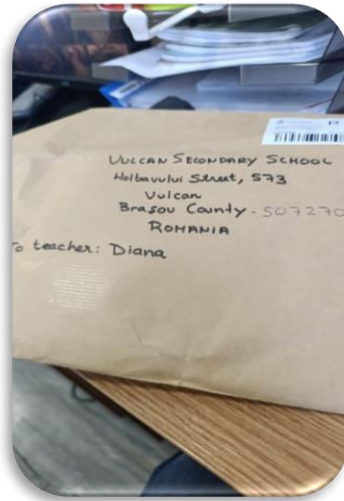 VULCAN SECONDARY SCHOOL
Holbavului Street, 573
Vulcan
Brasov County - 507270
ROMANIA
To teacher: Diana